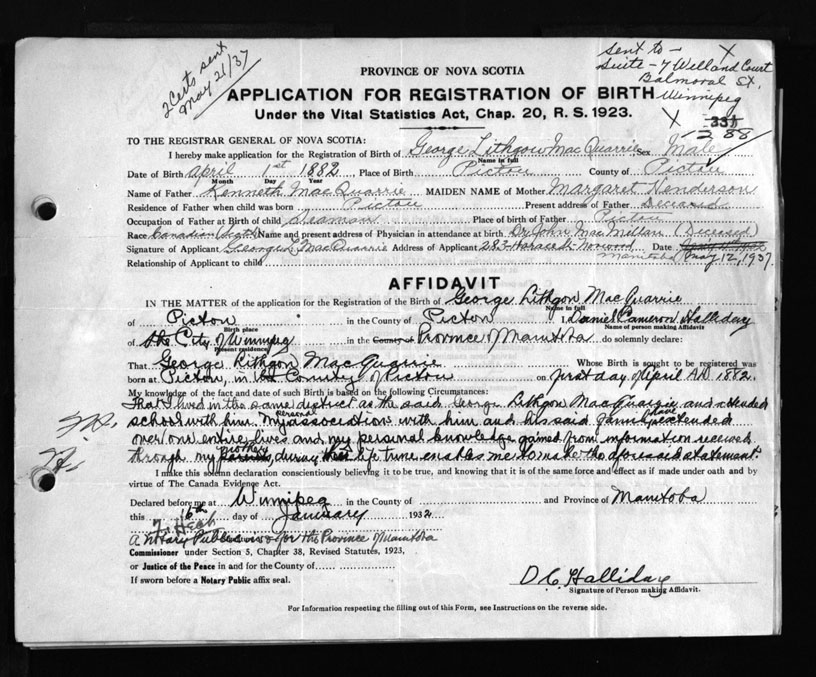 2 Certs sent
May 21/37
sent to - X
Suite - 7 Welland Court
Balmoral St.
Winnipeg
X 331
288
PROVINCE OF NOVA SCOTIA
APPLICATION FOR REGISTRATION OF BIRTH
Under the Vital Statistics Act, Chap. 20, R. S. 1923.
TO THE REGISTRAR GENERAL OF NOVA SCOTIA:
I hereby make application for the Registration of Birth of George Lithgow MacQuarrie Sex Male
Name in full
Date of Birth April 1st 1882 Place of Birth Pictou County of Pictou
Month Day Year
Name of Father Kenneth MacQuarrie MAIDEN NAME of Mother Margaret Henderson
Residence of Father when child was born Pictou Present address of Father Deceased
Occupation of Father at Birth of child Seaman Place of birth of Father Pictou
Race Canadian (Scotch) Name and present address of Physician in attendance at birth Dr John MacMillan (Deceased)
Signature of Applicant George L MacQuarrie Address of Applicant 283 Horace St. Norwood Date
Manitoba May 12, 1937.
Relationship of Applicant to child
AFFIDAVIT
IN THE MATTER of the application for the Registration of the Birth of George Lithgow MacQuarrie
Name in full
of Pictou in the County of Pictou I Daniel Cameron Halliday
Birth place Name of person making Affidavit
of the City of Winnipeg in the County of Province of Manitoba do solemnly declare:
Present residence
That George Lithgow MacQuarrie Whose Birth is sought to be registered was
born at Pictou, in the County of Pictou on first day of April AD 1882.
My knowledge of the fact and date of such Birth is based on the following Circumstances:
That I lived in the same district as the said George Lithgow MacQuarrie and attended
school with him. My personal association with him and his said family have extended
over our entire lives and my personal knowledge gained from information received
through my parents, mother during her life time enables me to make the aforesaid statement.
I make this solemn declaration conscientiously believing it to be true, and knowing that it is of the same force and effect as if made under oath and by
virtue of The Canada Evidence Act.
Declared before me at Winnipeg in the County of and Province of Manitoba
this 16th day of January 1932
A Notary Public in & for the Province of Manitoba
Commissioner under Section 5, Chapter 38, Revised Statutes, 1923,
or Justice of the Peace in and for the County of
If sworn before a Notary Public affix seal.
D. C. Halliday
Signature of Person making Affidavit.
For Information respecting the filling out of this Form, see Instructions on the reverse side.